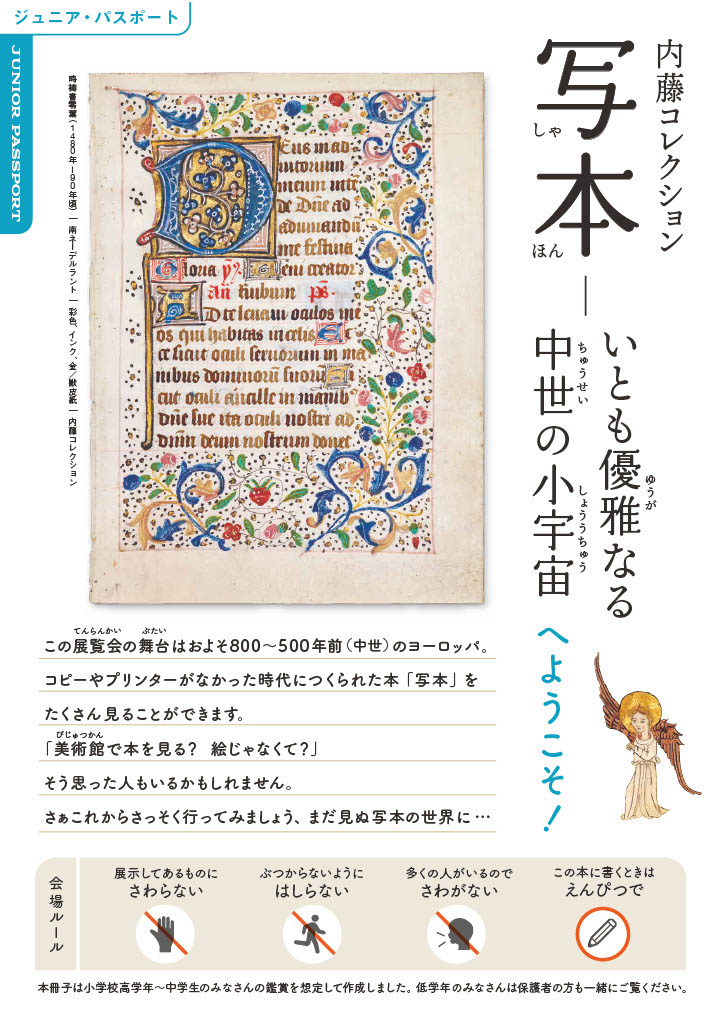 ジュニア・パスポート
JUNIOR PASSPORT
内藤コレクション
写本
しゃ
ほん
—
いとも優雅なる
ゆうが
中世の小宇宙
ちゅうせい
しょううちゅう
へようこそ!
時祷書零葉(1480年-90年頃)|南ネーデルラント|彩色、インク、金/獣皮紙|内藤コレクション
Eus in ad
iutorium
meum inte
de Dñe ad
adiuuandū
me festina
Gloria pr̄i Ueni creator
Añ Rubum ps.
AD te leuaui oculos me
os qui habitas in celis E
cce sicut oculi seruorum in ma
nibus dominorū suorū S
icut oculi ancille in manib
dñe sue ita oculi nostri ad
dñm deum nostrum donec
てんらんかい ぶたい
この展覧会の舞台はおよそ800〜500年前(中世)のヨーロッパ。
コピーやプリンターがなかった時代につくられた本「写本」を
たくさん見ることができます。
びじゅつかん
「美術館で本を見る? 絵じゃなくて?」
そう思った人もいるかもしれません。
さぁこれからさっそく行ってみましょう、まだ見ぬ写本の世界に…
会場ルール
展示してあるものに
さわらない
ぶつからないように
はしらない
多くの人がいるので
さわがない
この本に書くときは
えんぴつで
本冊子は小学校高学年〜中学生のみなさんの鑑賞を想定して作成しました。低学年のみなさんは保護者の方も一緒にご覧ください。